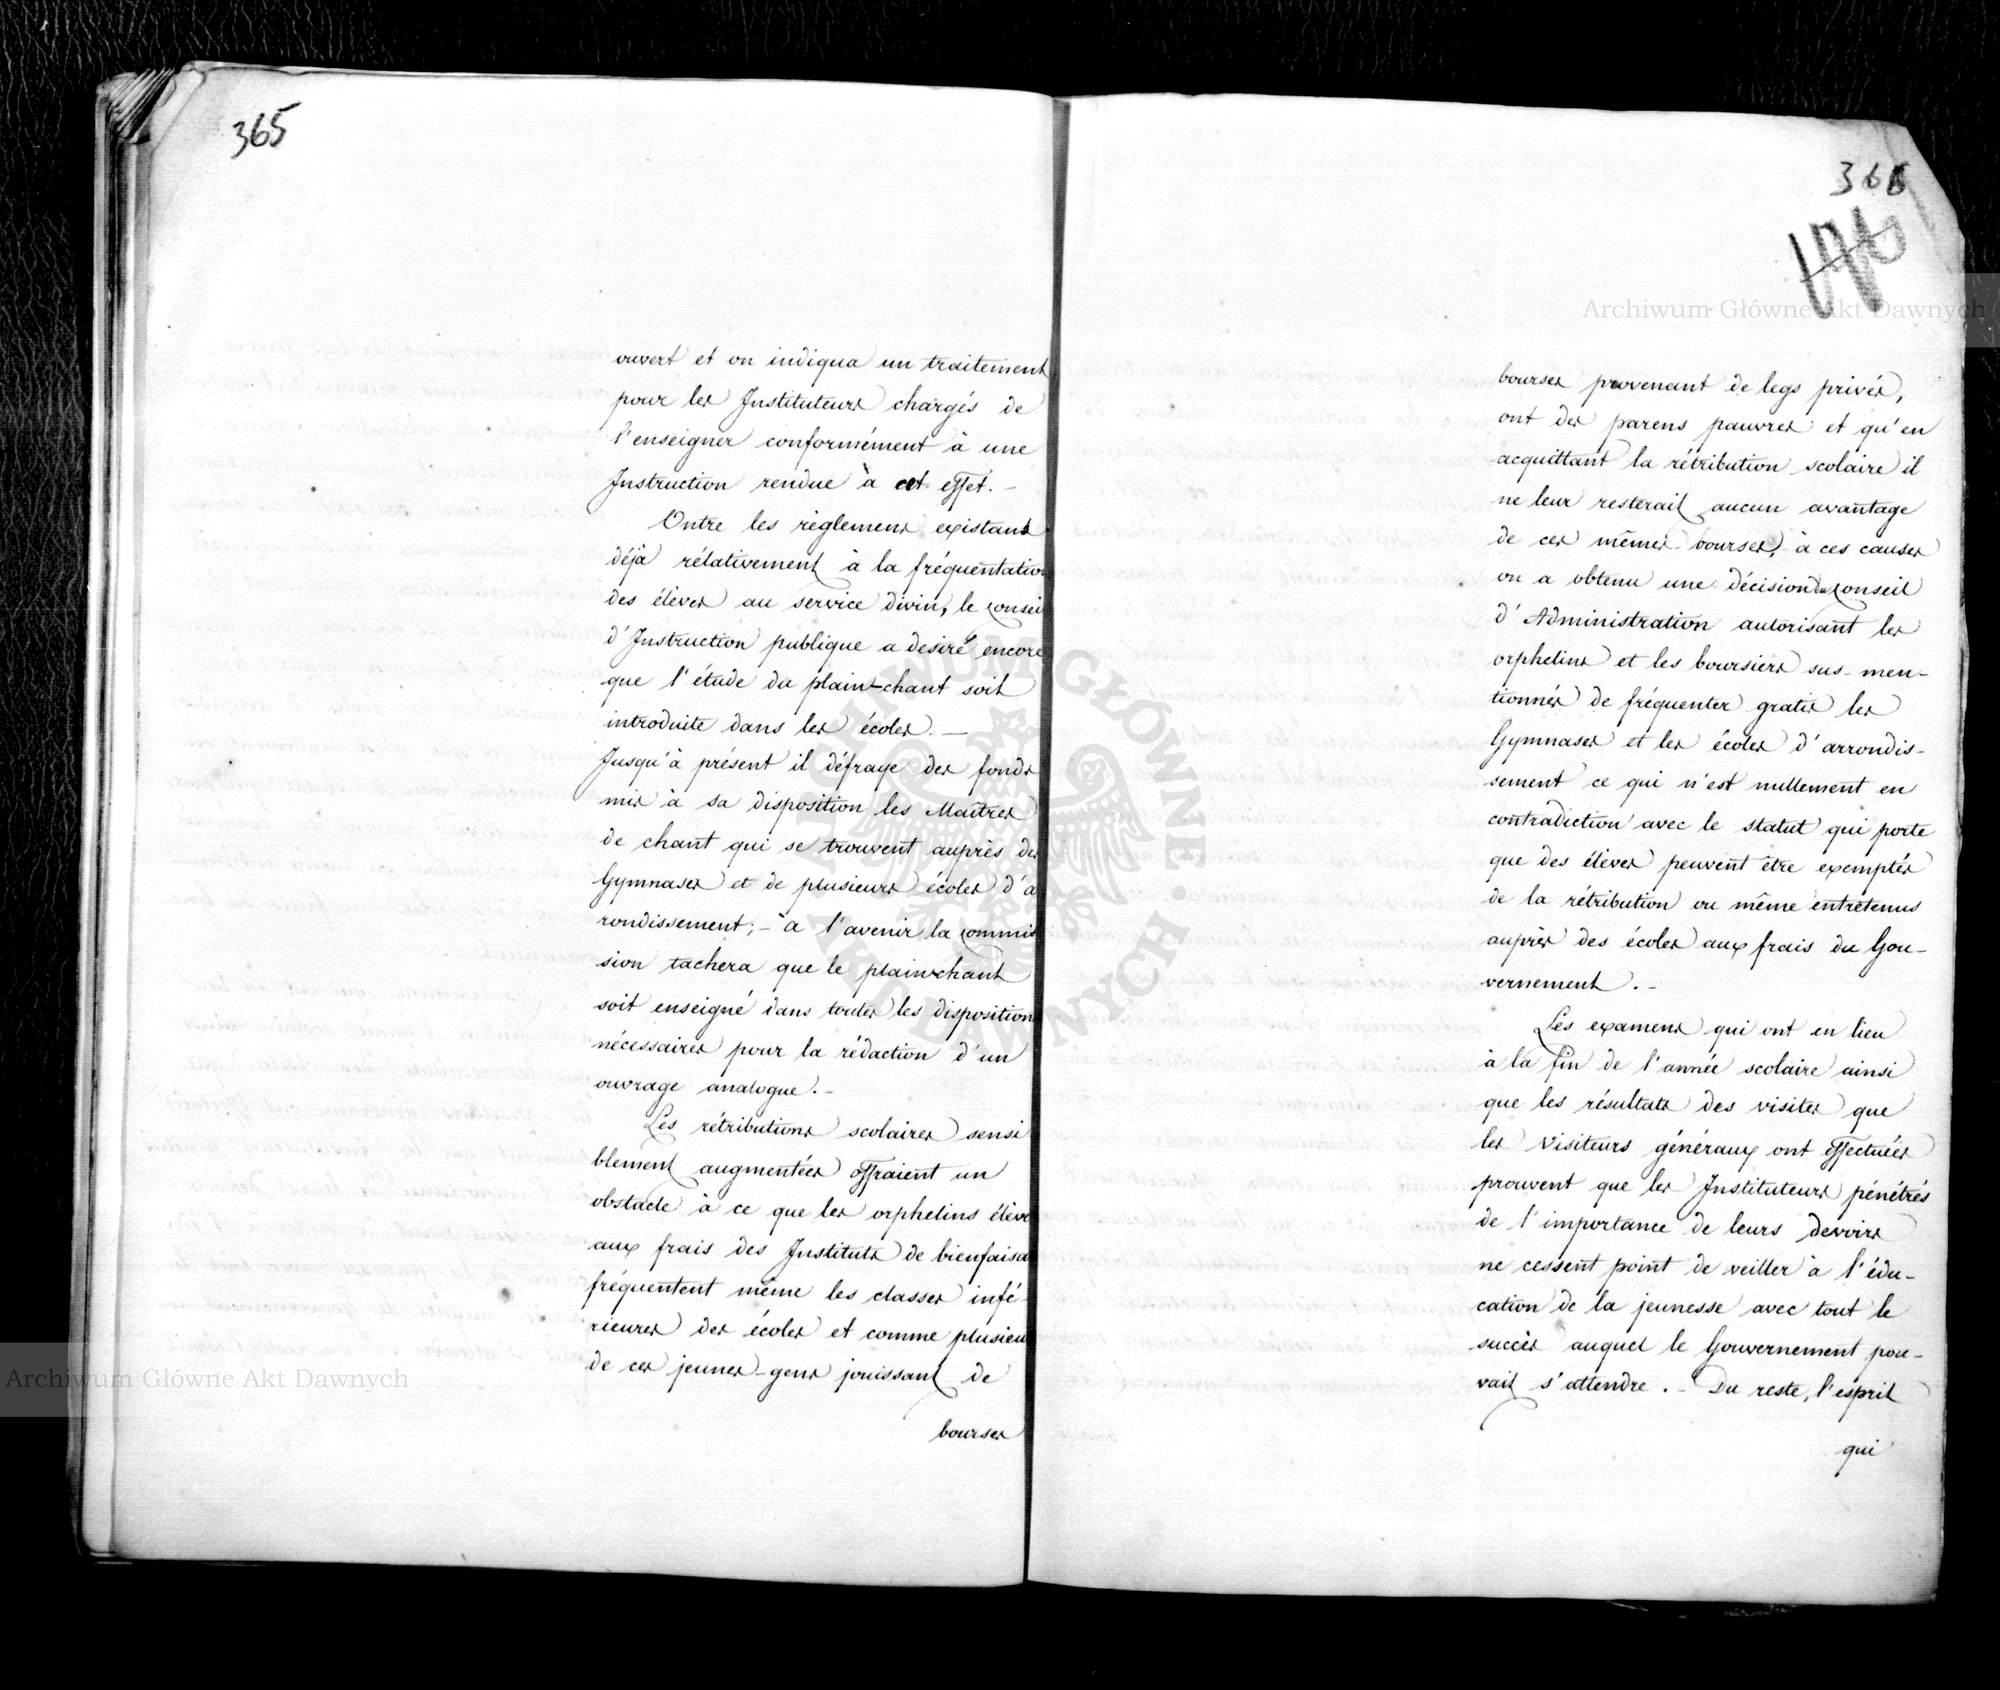 365
ouvert et on indiqua un traitement
pour les Instituteurs chargés de
l'enseigner conformément à une
Instruction rendue à cet effet. -
Outre les règlemens existans
déjà rélativement à la fréquentation
des élèves au service divin, le conseil
d'Instruction publique a desiré encore
que l'étude du plain-chant soit
introduite dans les écoles. -
Jusqu'à présent il défraye des fonds
mis à sa disposition les Maitres
de chant qui se trouvent auprès des
Gymnases et de plusieurs écoles d'a
rondissement; - à l'avenir la commis
sion tachera que le plain-chant
soit enseigné dans toutes les dispositions
nécessaires pour la rédaction d'un
ouvrage analogue. -
Les rétributions scolaires sensi
blement augmentées offraient un
obstacle à ce que les orphelins élevé
aux frais des Instituts de bienfaisa
fréquentent même les classes infé-
rieures des écoles et comme plusieu
de ces jeunes-gens jouissant de
bourses
366
Archiwum Główne Akt Dawnych
bourses provenant de legs privés,
ont des parens pauvres et qu'en
acquittant la rétribution scolaire il
ne leur resterait aucun avantage
de ces mêmes bourses, à ces causes
on a obtenu une décision du conseil
d'Administration autorisant les
orphelins et les boursiers sus-men-
tionnés de fréquenter gratis les
Gymnases et les écoles d'arrondis-
sement ce qui n'est nullement en
contradiction avec le statut qui porte
que des élèves peuvent être exemptés
de la rétribution ou même entretenus
auprès des écoles aux frais du Gou-
vernement. -
Les examens qui ont eu lieu
à la fin de l'année scolaire ainsi
que les résultats des visites que
les Visiteurs généraux ont effectuées
prouvent que les Instituteurs pénétrés
de l'importance de leurs devoirs
ne cessent point de veiller à l'édu-
cation de la jeunesse avec tout le
succès auquel le Gouvernement pou-
vait s'attendre. - Du reste, l'esprit
qui
ARCHIWUM GŁÓWNE AKT DAWNYCH
Archiwum Główne Akt Dawnych